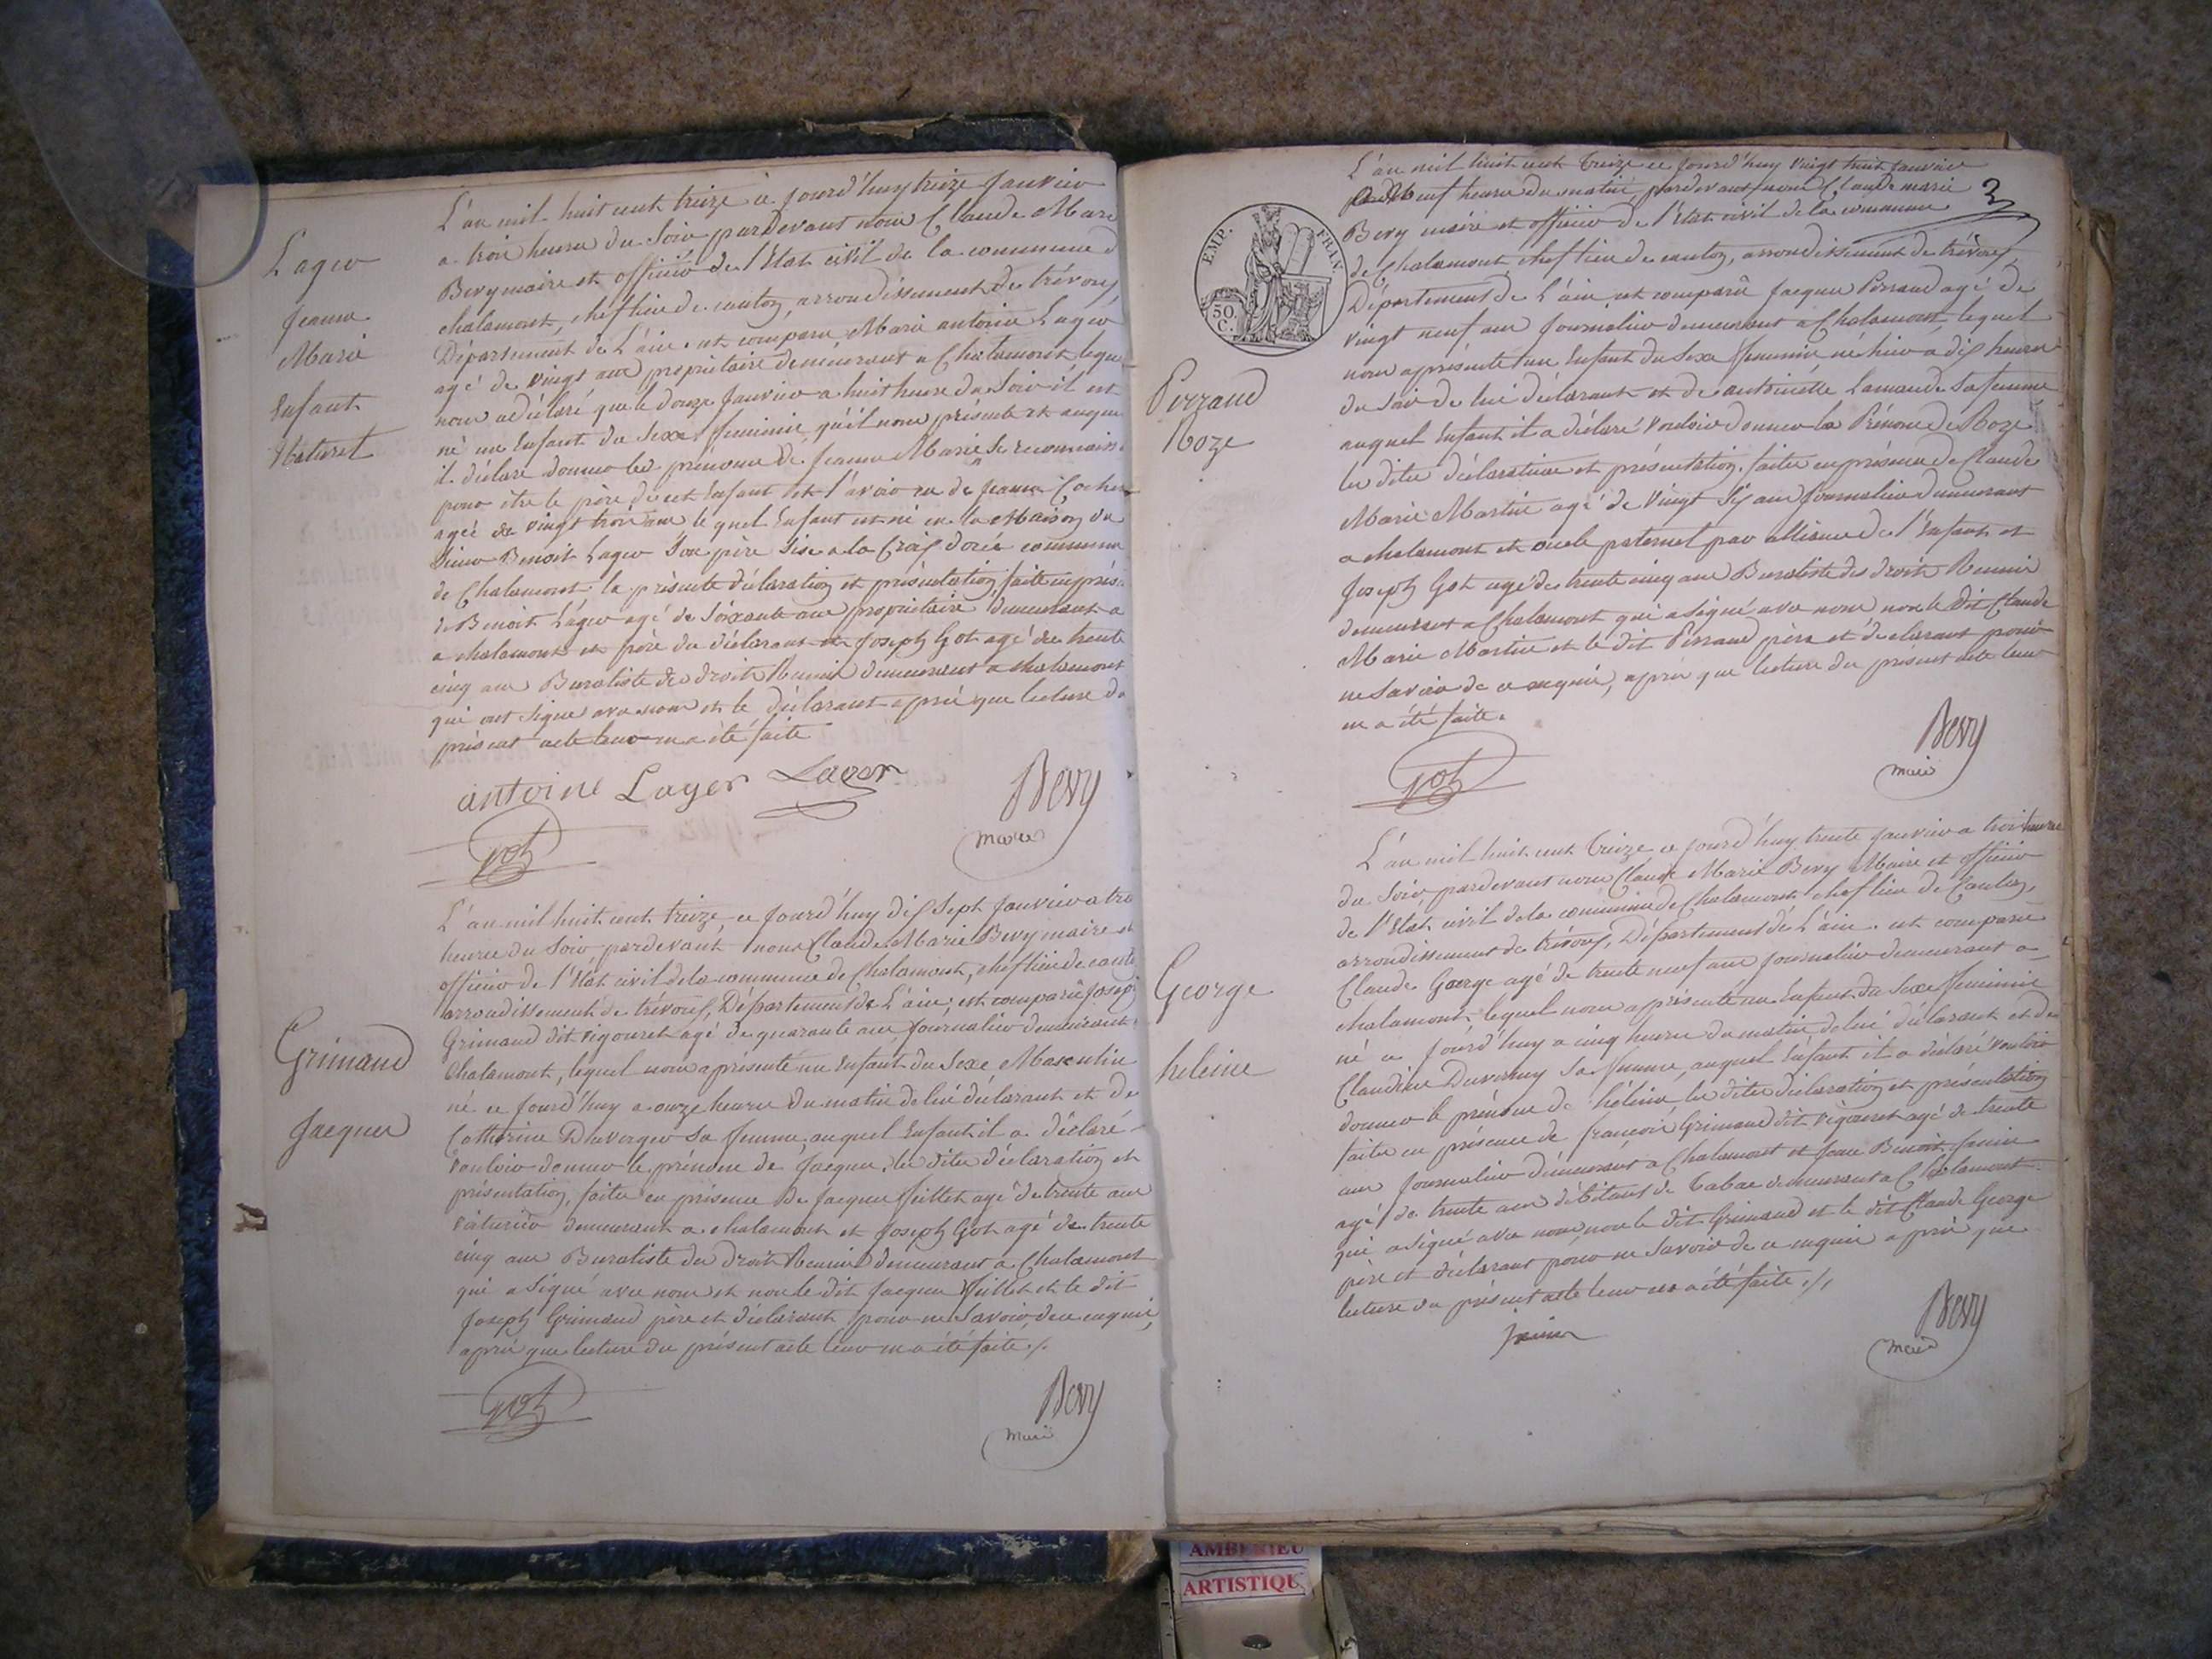 Lager
Jeanne
Marie
Enfant
Naturel
L'an mil huit cent treize ce Jourd'huy treize Janvier
a trois heures du Soir pardevant nous Claude Mari
Bevy maire et officier de l'Etat civil de la commune d
chalamont, chef lieu de canton, arrondissement de trévoux
Département de L'ain. est comparu Marie antoine Lager
agé de vingt ans propriétaire demeurant a Chalamont leque
nous a déclaré que le douze Janvier a huit heures du Soir il est
né un Enfant du Sexe feminin qu'il nous présente et auque
il déclare donner les prénoms de Jeanne Marie Se reconnaiss
pour être le père de cet Enfant et l'avoir eu de Jeanne
agée de vingt trois ans le quel Enfant est né en la Maison du
Sieur Benoit Lager Son père Sise a la Croix dorée commune
de Chalamont. la présente déclaration et présentation faite en prés
de Benoit Lager agé de Soixante ans propriétaire demeurant a
a chalamont et père du déclarant et Joseph Got agé de trente
cinq ans Buraliste des droits Reunis demeurant a chalamont
qui ont Signé avec nous et le déclarant après que lecture du
présent acte leur en a été faite
antoine Lager Lager
Got
Bevy
maire
Grimaud
Jacques
L'an mil huit cent treize, ce Jourd'huy dix Sept Janvier a tro
heures du Soir, pardevant nous Claude Marie Bevy maire et
officier de l'Etat civil de la commune de Chalamont, chef lieu de cant
arrondissement de trévoux, Département de L'ain, est comparû Josep
Grimaud dit vigouret agé de quarante ans Journalier demeurant
Chalamont, lequel nous a présenté un Enfant du Sexe Masculin
né ce Jourd'huy a onze heures du matin de lui déclarant et de
Catherine Duverger Sa femme, auquel Enfant il a déclaré
vouloir donner le prénom de Jacques, les dites déclaration et
présentation, faites en présence de Jacques Juillet agé de trente ans
voiturier demeurant a chalamont et Joseph Got agé de trente
cinq ans Buraliste des droits Reunis demeurant a Chalamont
qui a Signé avec nous et non le dit Jacques Juillet et le dit
Joseph Grimaud père et déclarant pour ne Savoir de ce enquis,
après que lecture du présent acte leur en a été faite ./.
Got
Bevy
maire
3
EMP. FRAN.
50.
C.
Perraud
Roze
L'an mil huit cent treize ce Jourd'huy vingt huit Janvier
Neuf heures du matin, pardevant nous Claude marie
Bevy maire et officier de l'Etat civil de la commune
de Chalamont chef lieu de canton, arrondissement de trévoux,
Département de L'ain est comparû Jacques Perraud agé de
vingt neuf ans Journalier demeurant a Chalamont, lequel
nous a présenté un Enfant du Sexe feminin né hier a dix heures
du Soir de lui déclarant et de antoinette Sa femme
auquel Enfant il a déclaré Vouloir donner le Prénom de Roze
les dites déclaration et présentation. faites en présence de Claude
Marie Martin agé de vingt Six ans Journalier demeurant
a chalamont et oncle paternel par alliance de l'Enfant et
Joseph Got agé de trente cinq ans Buraliste des droits Reunis
demeurant a Chalamont qui a Signé avec nous non le dit Claude
Marie Martin et le dit Perraud père et déclarant pour
ne Savoir de ce enquis, après que lecture du présent acte leur
en a été faite.
Got
Bevy
maire
George
heleine
L'an mil huit cent treize ce Jourd'huy trente Janvier a trois heures
du Soir, pardevant nous Claude Marie Bevy Maire et officier
de l'Etat civil de la commune de Chalamont chef lieu de Canton,
arrondissement de trévoux, Département de L'ain. est comparû
Claude George agé de trente neuf ans Journalier demeurant a
chalamont, lequel nous a présenté un Enfant du Sexe feminin
né ce Jourd'huy a cinq heures du matin de lui déclarant et de
Claudine Duvernay Sa femme, auquel Enfant il a déclaré vouloir
donner le prénom de héleine les dites déclaration et présentation
faites en présence de françois Grimaud dit vigouret agé de trente
ans Journalier demeurant a Chalamont et Jean Benoit Janin
agé de trente ans débitant de Tabac demeurant a Chalamont
qui a Signé avec nous, non le dit Grimaud et le dit Claude George
père et déclarant pour ne Savoir de ce enquis après que
lecture du présent acte leur en a été faite ./.
Janin
Bevy
maire
AMBERIEU
ARTISTIQU